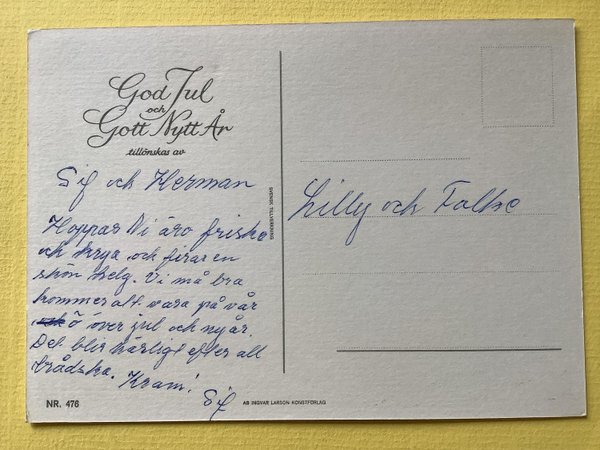 God Jul
och
Gott Nytt År
tillönskas av
Sif och Herman
Hoppas Ni äro friska
och krya och firar en
skön helg. Vi må bra
kommer att vara på vår
ö över jul och nyår.
Det blir härligt efter all
brådska. Kram!
Sif
NR. 476
SVENSK TILLVERKNING
AB INGVAR LARSON KONSTFÖRLAG
Lilly och Folke